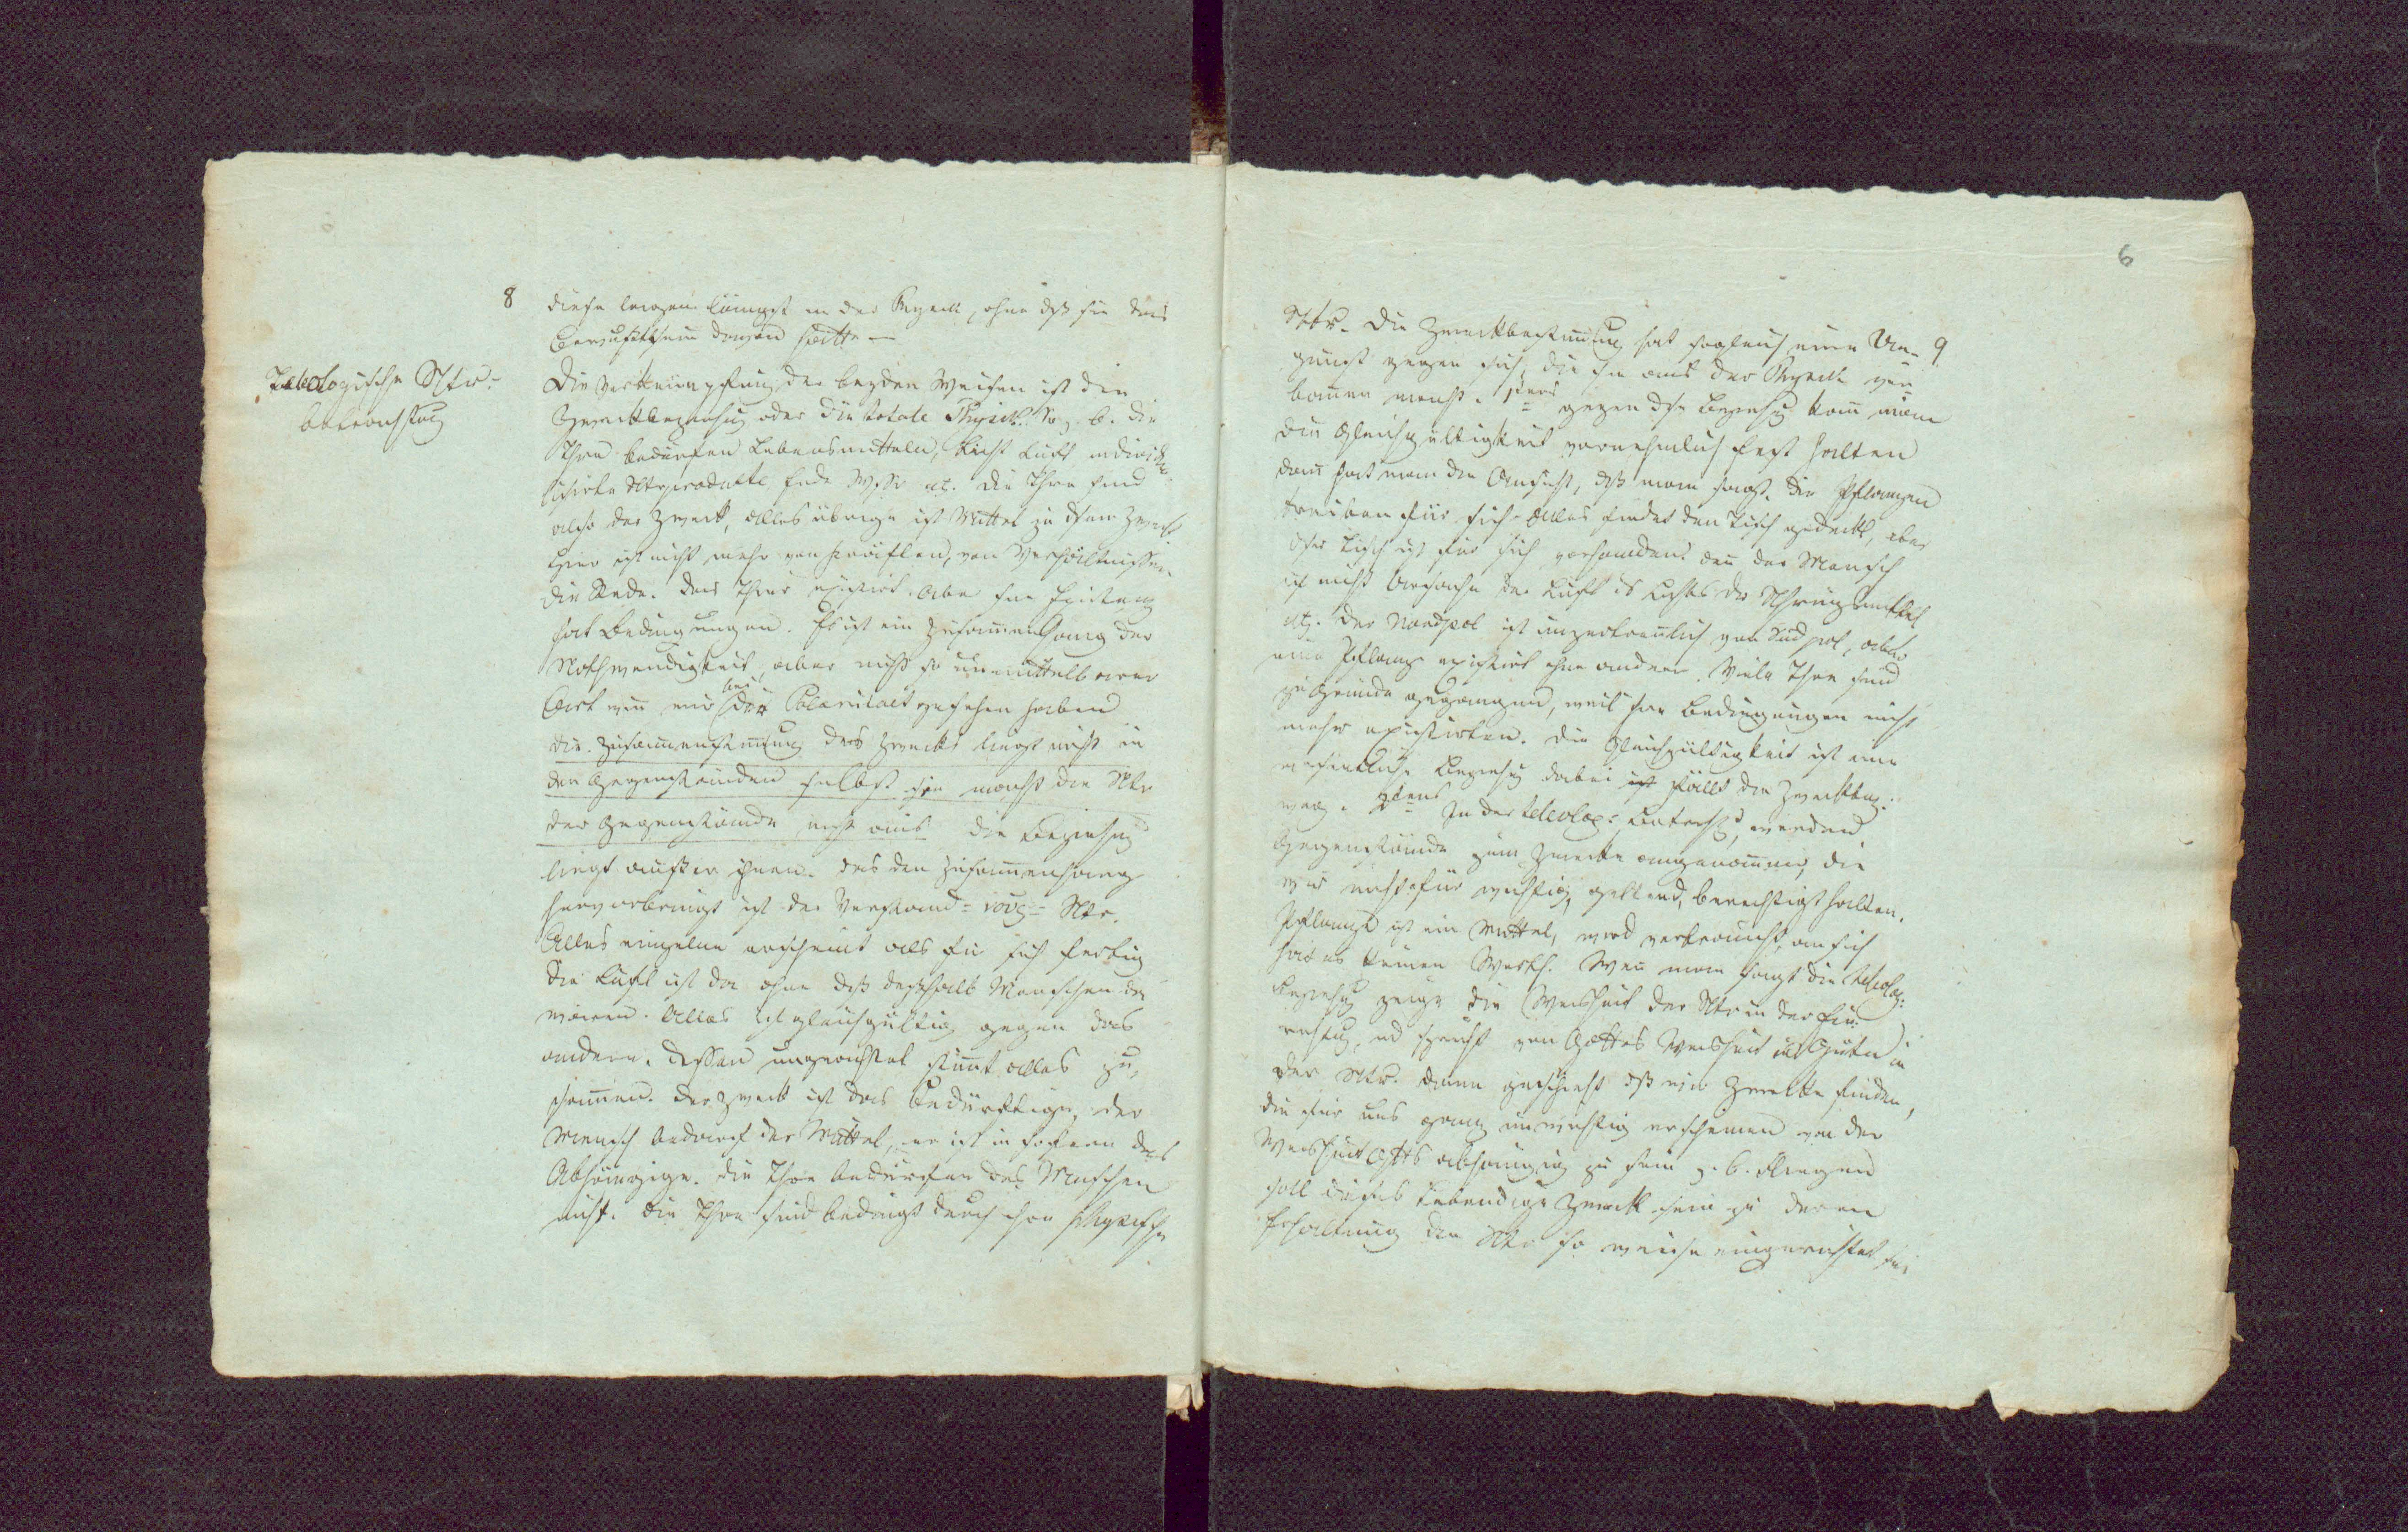 8
diese liegen längst in der Physik, ohne dß sie das
Bewußtseyn davon hätte –
Teleologische Ntur-
betrachtung
Die Verknüpfung der beyden Weisen ist die
Zweckbeziehug oder die totale Physik. So z. b. die
Thre bedürfen Lebensmitteln, Licht Luft individu
alisirte Ntrprodukte Erde Wssr etc. die Thre sind
also der Zweck, alles übrige ist Mittel zu dsem Zweck
hier ist nicht mehr von Kräften, von Verhältnissen
die Rede. Das Thier existirt. Aber sne Existenz
hat Bedingungen. Es ist ein Zusammenhang der
Nothwendigkeit, aber nicht so unmittelbarer
Art wie wir bei der Polarität gesehen haben
die Zusammenstimung des Zwecks liegt nicht in
den Gegenständen selbst sie macht die Ntr
der Gegenstände nicht aus die Beziehug
liegt außer ihnen. Das den Zusammenhang
hervorbringt ist der Verstand = νους = Ntr.
Alles einzelne erscheint als für sich fertig
die Luft ist da ohne daß deßhalb Menschen da
wären. Alles ist gleichgültig gegen das
andere. Dessen ungeachtet stimt alles zu-
sammen. Der Zweck ist das Bedürftige, der
Mensch bedarf der Mittel, er ist in sofern das
Abhängige. die Thre bedürfen des Menschen
nicht. Die Thre sind bedingt durch ihre physische
6
9
Ntr. Die Zweckbestimung hat sogleich eine Un-
gunst gegen sich, die sie aus der Physik ver-
banen macht. 1stens gegen dse Beziehg kann man
die Gleichgültigkeit vornehmlich fest halten
dann hat man die Ansicht, dß man sagt. die Pflanzen
treiben für sich. Alles findet den Tisch gedeckt, aber
dser Tisch ist für sich vorhanden. denn der Mensch
ist nicht Ursache der Luft ds Lichts der Nahrungsmittel
etc. Der Nordpol ist unzertrennlich vom Südpol, aber
eine Pflanze existirt ohne andere. Viele Thre sind
zu Grunde gegangen, weil sne Bedingungen nicht
mehr existirten. Die Gleichgültigkeit ist eine
wesentliche Beziehg dabei fällt die Zweckbez:
weg. 2tens In der teleolog: Betrachtg, werden
Gegenstände zum Zwecke angenommen, die
wir nicht für wichtig, geltend, berechtigt halten.
Pflanze ist ein Mittel, wird verbraucht, an sich
hat es keinen Werth. Wenn man sagt die teleolog:
Beziehg zeige die Weisheit der Ntr in der Ein-
richtg, und spricht von Gottes Weisheit und Güte in
der Ntr. dann geschieht dß wir Zwecke finden,
die für uns ganz unwichtig erscheinen von der
Weisheit Gotts abhängig zu sein z. b. Fliegen
soll dieses Lebendige Zweck sein zu deren
Erhaltung die Ntr so weise eingerichtet sei